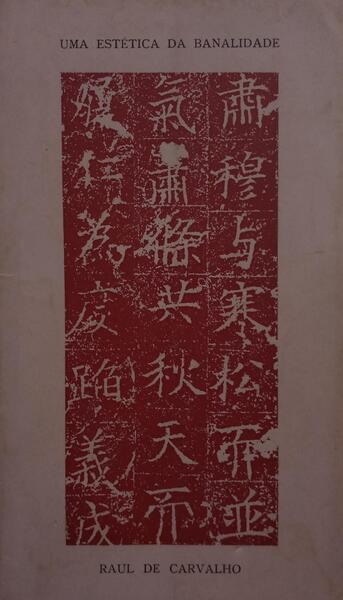 UMA ESTÉTICA DA BANALIDADE
肅穆与寒松而並
氣蕭條共秋天而
履仁為度蹈義成
RAUL DE CARVALHO